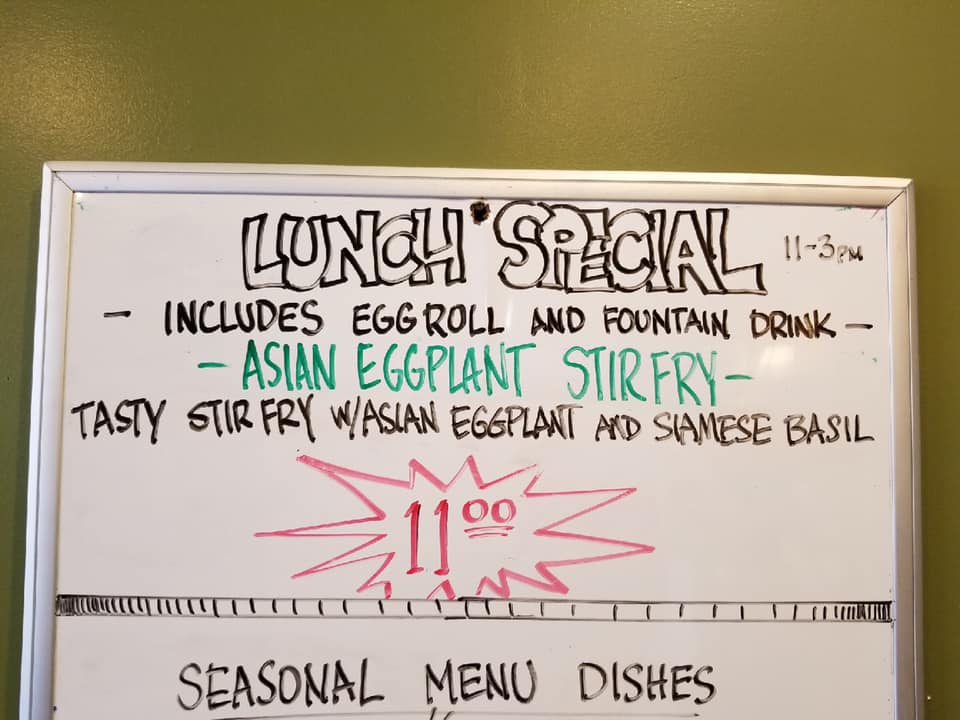 LUNCH SPECIAL 11-3PM
- INCLUDES EGGROLL AND FOUNTAIN DRINK -
- ASIAN EGGPLANT STIR FRY -
TASTY STIR FRY W/ASIAN EGGPLANT AND SIAMESE BASIL
11 00
SEASONAL MENU DISHES